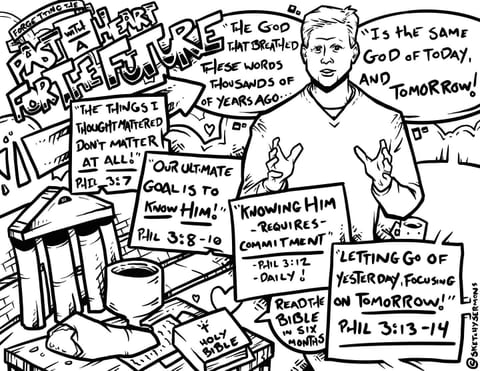 FORGETTING THE
PAST WITH A HEART
FOR THE FUTURE
"THE GOD
THAT BREATHED
THESE WORDS
THOUSANDS OF
OF YEARS AGO...
"IS THE SAME
GOD OF TODAY,
AND
TOMORROW!
"THE THINGS I
THOUGHT MATTERED
DON'T MATTER
AT ALL!"
PHIL 3:7
"OUR ULTIMATE
GOAL IS TO
KNOW HIM!"
PHIL 3:8-10
"KNOWING HIM
-REQUIRES-
COMMITMENT"
-PHIL 3:12
-DAILY!
"LETTING GO OF
YESTERDAY, FOCUSING
ON TOMORROW!"
PHIL 3:13-14
READ THE
BIBLE
IN SIX
MONTHS
HOLY
BIBLE
@SKETCHYSERMONS